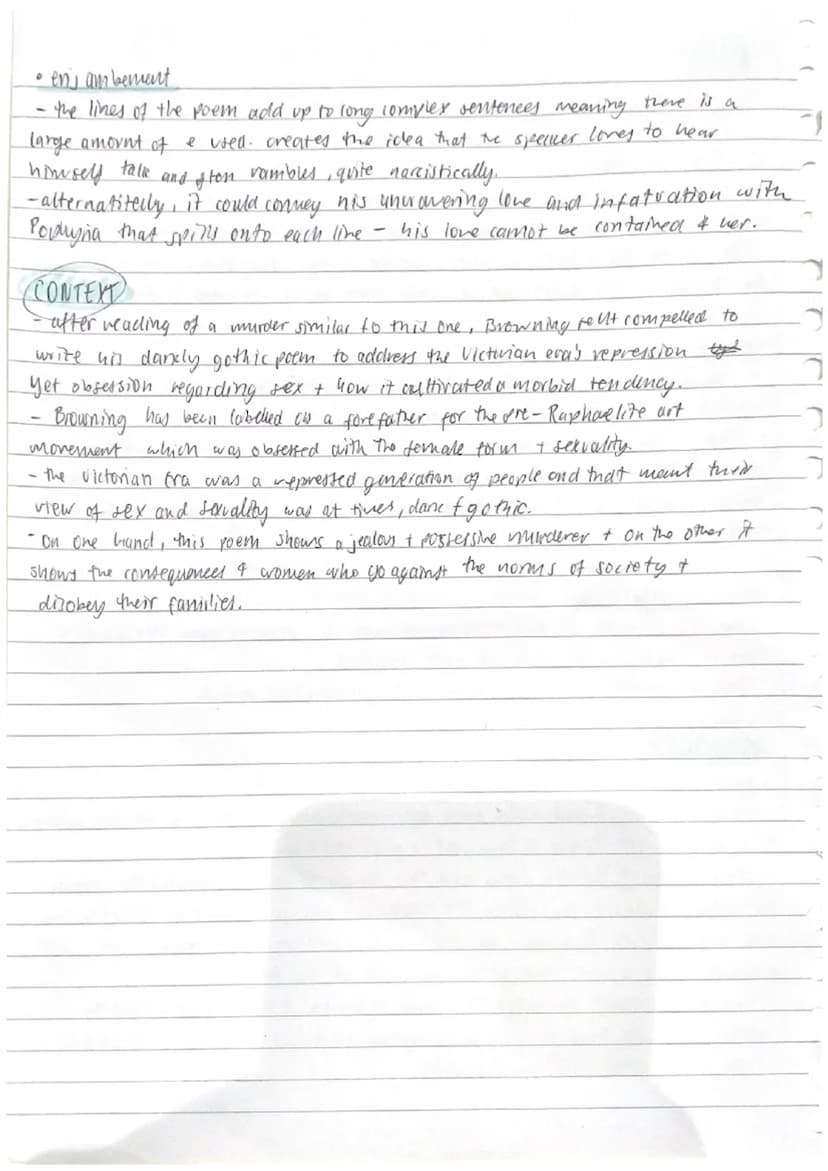 • enjambement
- the lines of the poem add up to long complex sentences meaning there is a
large amount of e used. creates the idea that the speaker loves to hear
himself talk and often rambles, quite narcistically.
- alternatitelly, it could convey his unwavering love and infatuation with
Porhyria that spills onto each line - his love cannot be contained 4 her.
CONTEXT
- after reading of a murder similar to this one, Browning felt compelled to
write his darkly gothic poem to address the Victorian era's repression
yet obsession regarding sex + how it cultivated a morbid tendency.
- Browning has been labelled as a forefather for the pre-Raphaelite art
movement which was obsessed with the female form + sexuality.
- the Victorian Era was a repressed generation of people and that meant their
view of sex and sexuality was at times, dark + gothic.
- On one hand, this poem shows a jealous + possessive murderer + on the other it
shows the consequences 4 women who go against the norms of society +
disobey their families.